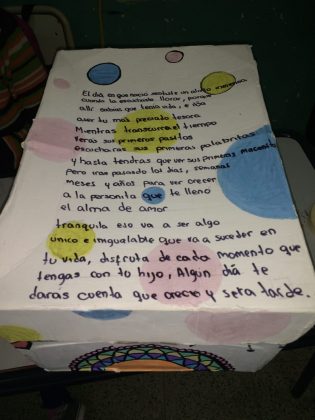 El día en que nació sentiste un alivio inmenso
cuando la escuchaste llorar, porque
allí sabías que tenía vida, e iba
a ser tu más preciado tesoro
Mientras transcurre el tiempo
verás sus primeros pasitos
escucharás sus primeras palabritas
y hasta tendrás que ver sus primeros
pero irán pasando los días, semanas
meses y años para ver crecer
a la personita que te lleno
el alma de amor
tranquila eso va a ser algo
único e inigualable que va a suceder en
tu vida, disfruta de cada momento que
tengas con tu hijo, Algún día te
darás cuenta que crece y será tarde.